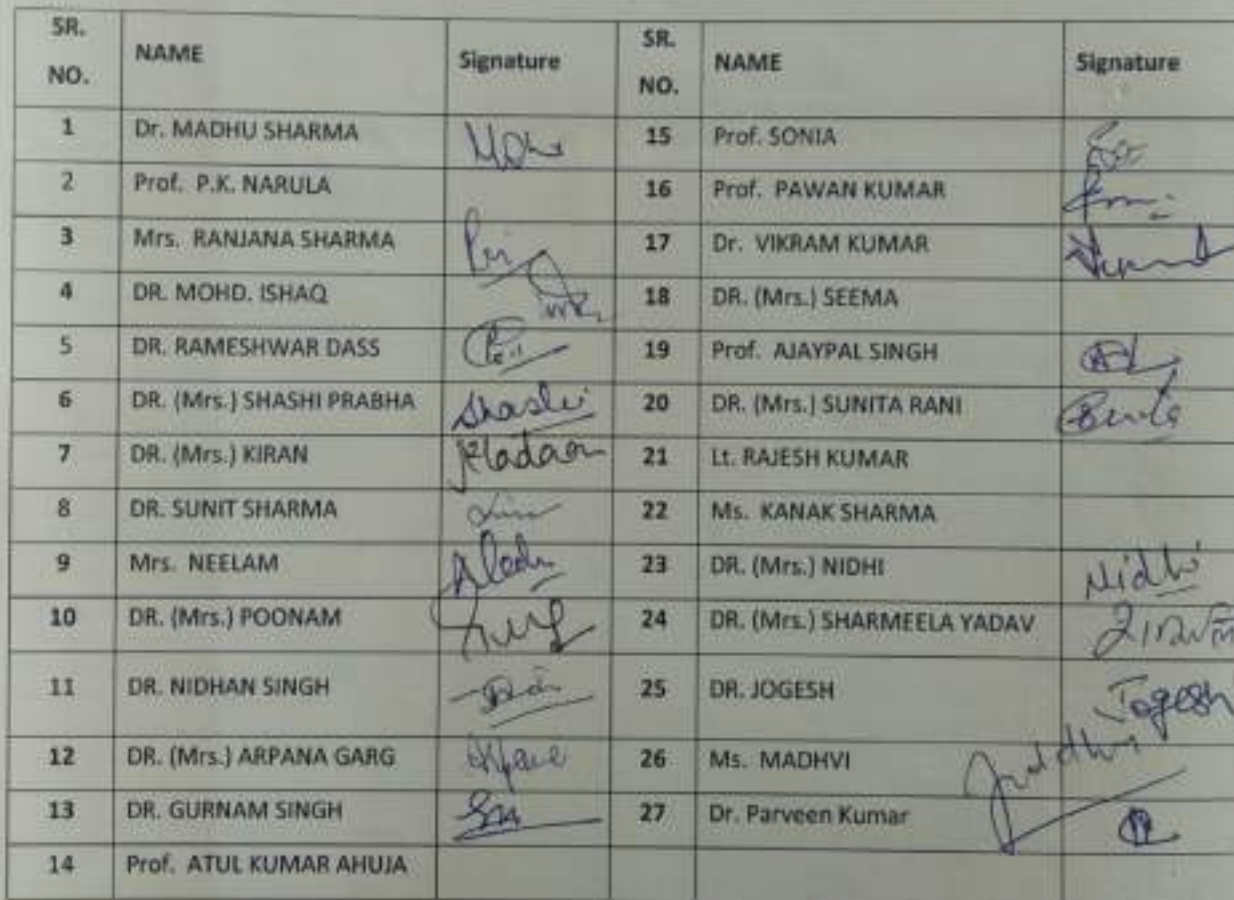 SR. NO. NAME Signature SR. NO. NAME Signature
1 Dr. MADHU SHARMA 15 Prof. SONIA
2 Prof. P.K. NARULA 16 Prof. PAWAN KUMAR
3 Mrs. RANJANA SHARMA 17 Dr. VIKRAM KUMAR
4 DR. MOHD. ISHAQ 18 DR. (Mrs.) SEEMA
5 DR. RAMESHWAR DASS 19 Prof. AJAYPAL SINGH
6 DR. (Mrs.) SHASHI PRABHA Shashi 20 DR. (Mrs.) SUNITA RANI
7 DR. (Mrs.) KIRAN 21 Lt. RAJESH KUMAR
8 DR. SUNIT SHARMA 22 Ms. KANAK SHARMA
9 Mrs. NEELAM 23 DR. (Mrs.) NIDHI Nidhi
10 DR. (Mrs.) POONAM 24 DR. (Mrs.) SHARMEELA YADAV
11 DR. NIDHAN SINGH 25 DR. JOGESH Jogesh
12 DR. (Mrs.) ARPANA GARG 26 Ms. MADHVI
13 DR. GURNAM SINGH 27 Dr. Parveen Kumar
14 Prof. ATUL KUMAR AHUJA